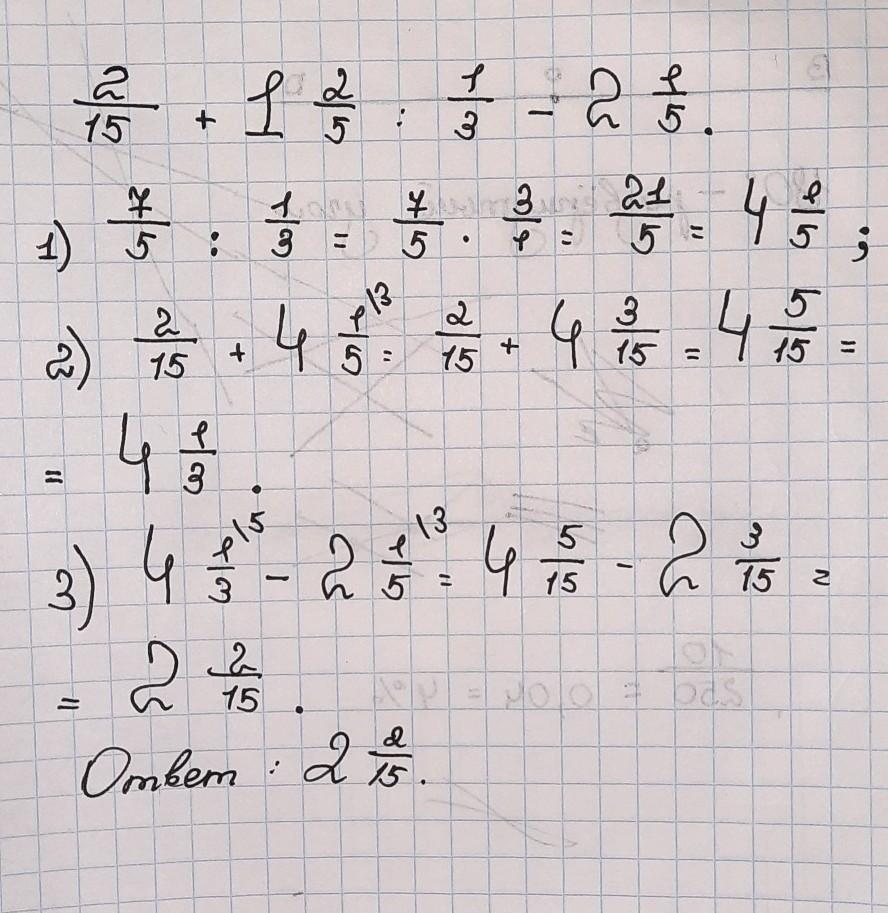 2/15 + 1 2/5 : 1/3 - 2 1/5.
1) 7/5 : 1/3 = 7/5 · 3/1 = 21/5 = 4 1/5;
2) 2/15 + 4 1/5\3 = 2/15 + 4 3/15 = 4 5/15 =
= 4 1/3.
3) 4 1/3\5 - 2 1/5\3 = 4 5/15 - 2 3/15 =
= 2 2/15.
10/250 = 0,04 = 4%
Ответ: 2 2/15.